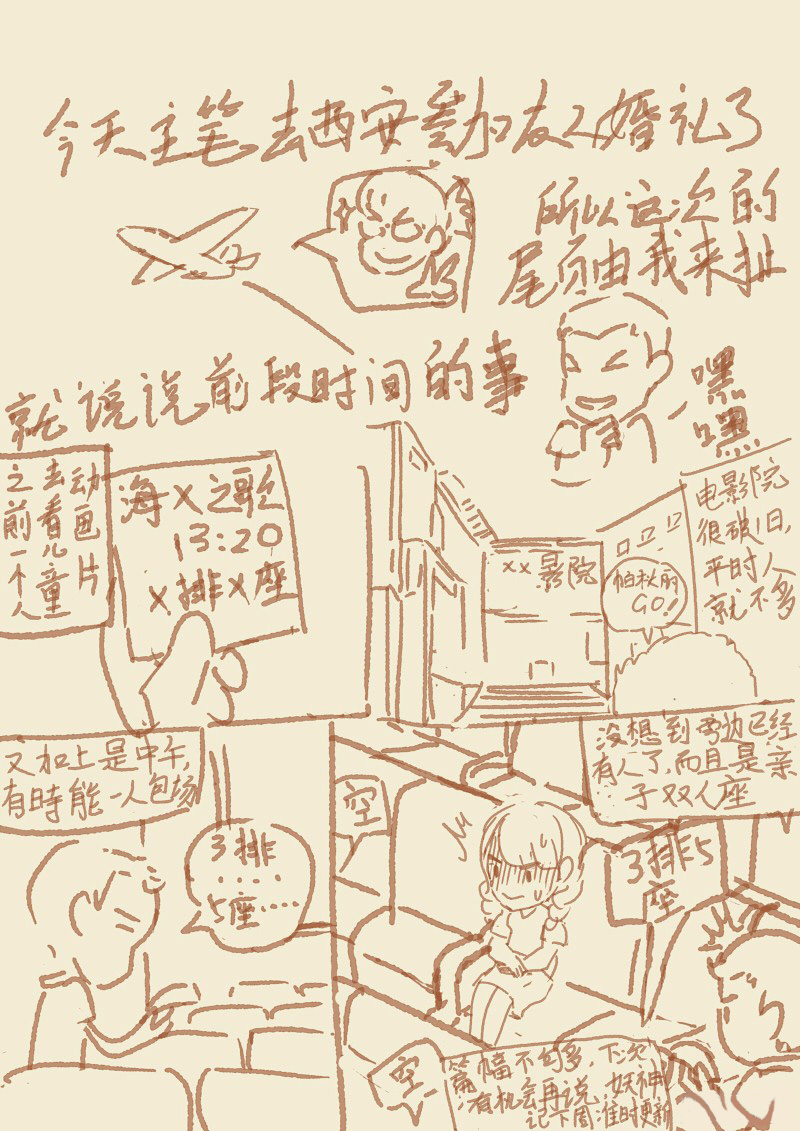 今天主笔去西安参加友人婚礼了
所以这次的
尾页由我来扯
就说说前段时间的事
嘿
嘿
动画片
去看儿童
之前一个人
海X之歌
13:20
X排X座
XX影院
帕秋丽
GO!
电影院
很破旧,
平时人
就不多
又加上是中午,
有時能一人包场
3排
····
5座······
空
没想到旁边已经
有人了,而且是亲
子双人座
3排5
座
空
篇幅不够多,下次
有机会再说,妖神
记下周准时更新